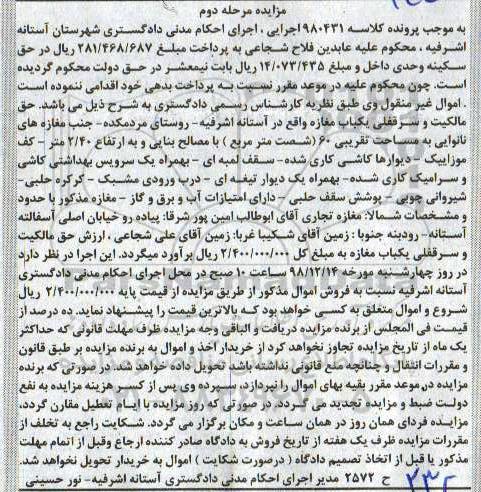 مزایده مرحله دوم
به موجب پرونده کلاسه ۹۸۰۴۳۱ اجرایی ، اجرای احکام مدنی دادگستری شهرستان آستانه
اشرفیه ، محکوم علیه عابدین فلاح شجاعی به پرداخت مبلغ ۲۸۱/۴۶۸/۶۸۷ ریال در حق
سکینه وحدی داخل و مبلغ ۱۴/۰۷۳/۴۳۵ ریال بابت نیمعشر در حق دولت محکوم گردیده
است. چون محکوم علیه در موعد مقرر نسبت به پرداخت بدهی خود اقدامی ننموده است
. اموال غیر منقول وی طبق نظریه کارشناس رسمی دادگستری به شرح ذیل می باشد. حق
مالکیت و سرقفلی یکباب مغازه واقع در آستانه اشرفیه- روستای مردمکده- جنب مغازه های
نانوایی به مساحت تقریبی ۶۰ (شصت متر مربع ) با مصالح بنایی و به ارتفاع ۲/۴۰ متر - کف
موزاییک - دیوارها کاشی کاری شده- سقف لمبه ای - بهمراه یک سرویس بهداشتی کاشی
و سرامیک کاری شده- بهمراه یک دیوار تیغه ای - درب ورودی مشبک - کرکره حلبی-
شیروانی چوبی - پوشش سقف حلبی - دارای امتیازات آب و برق و گاز - مغازه مذکور با حدود
و مشخصات شمالا: مغازه تجاری آقای ابوطالب امین پور شرقا: پیاده رو خیابان اصلی آسفالته
آستانه- رودبنه جنوبا : زمین آقای شکیبا غربا: زمین آقای علی شجاعی ، ارزش حق مالکیت
و سرقفلی یکباب مغازه به مبلغ کل ۲/۴۰۰/۰۰۰/۰۰۰ ریال برآورد میگردد. این اجرا در نظر دارد
در روز چهارشنبه مورخه ۹۸/۱۲/۱۴ ساعت ۱۰ صبح در محل اجرای احکام مدنی دادگستری
آستانه اشرفیه نسبت به فروش اموال مذکور از طریق مزایده از قیمت پایه ۲/۴۰۰/۰۰۰/۰۰۰ ریال
شروع و اموال متعلق به کسی خواهد بود که بالاترین قیمت را پیشنهاد نماید. ده درصد از
قیمت فی المجلس از برنده مزایده دریافت و الباقی وجه مزایده ظرف مهلت قانونی که حداکثر
یک ماه از تاریخ مزایده تجاوز نخواهد کرد از خریدار اخذ و اموال به برنده مزایده بر طبق قانون
و مقررات انتقال و چنانچه منع قانونی نداشته باشد تحویل داده خواهد شد. در صورتی که برنده
مزایده در موعد مقرر بقیه بهای اموال را نپردازد، سپرده وی پس از کسر هزینه مزایده به نفع
دولت ضبط و مزایده تجدید می گردد. در صورتی که روز مزایده با ایام تعطیل مقارن گردد،
مزایده فردای همان روز در همان ساعت و مکان برگزار می گردد. شکایت راجع به تخلف از
مقررات مزایده ظرف یک هفته از تاریخ فروش به دادگاه صادر کننده ارجاع وقبل از اتمام مهلت
مذکور یا قبل از اتخاذ تصمیم دادگاه ( درصورت شکایت ) اموال به خریدار تحویل نخواهد شد.
ح ۲۵۷۲ مدیر اجرای احکام مدنی دادگستری آستانه اشرفیه- نور حسینی